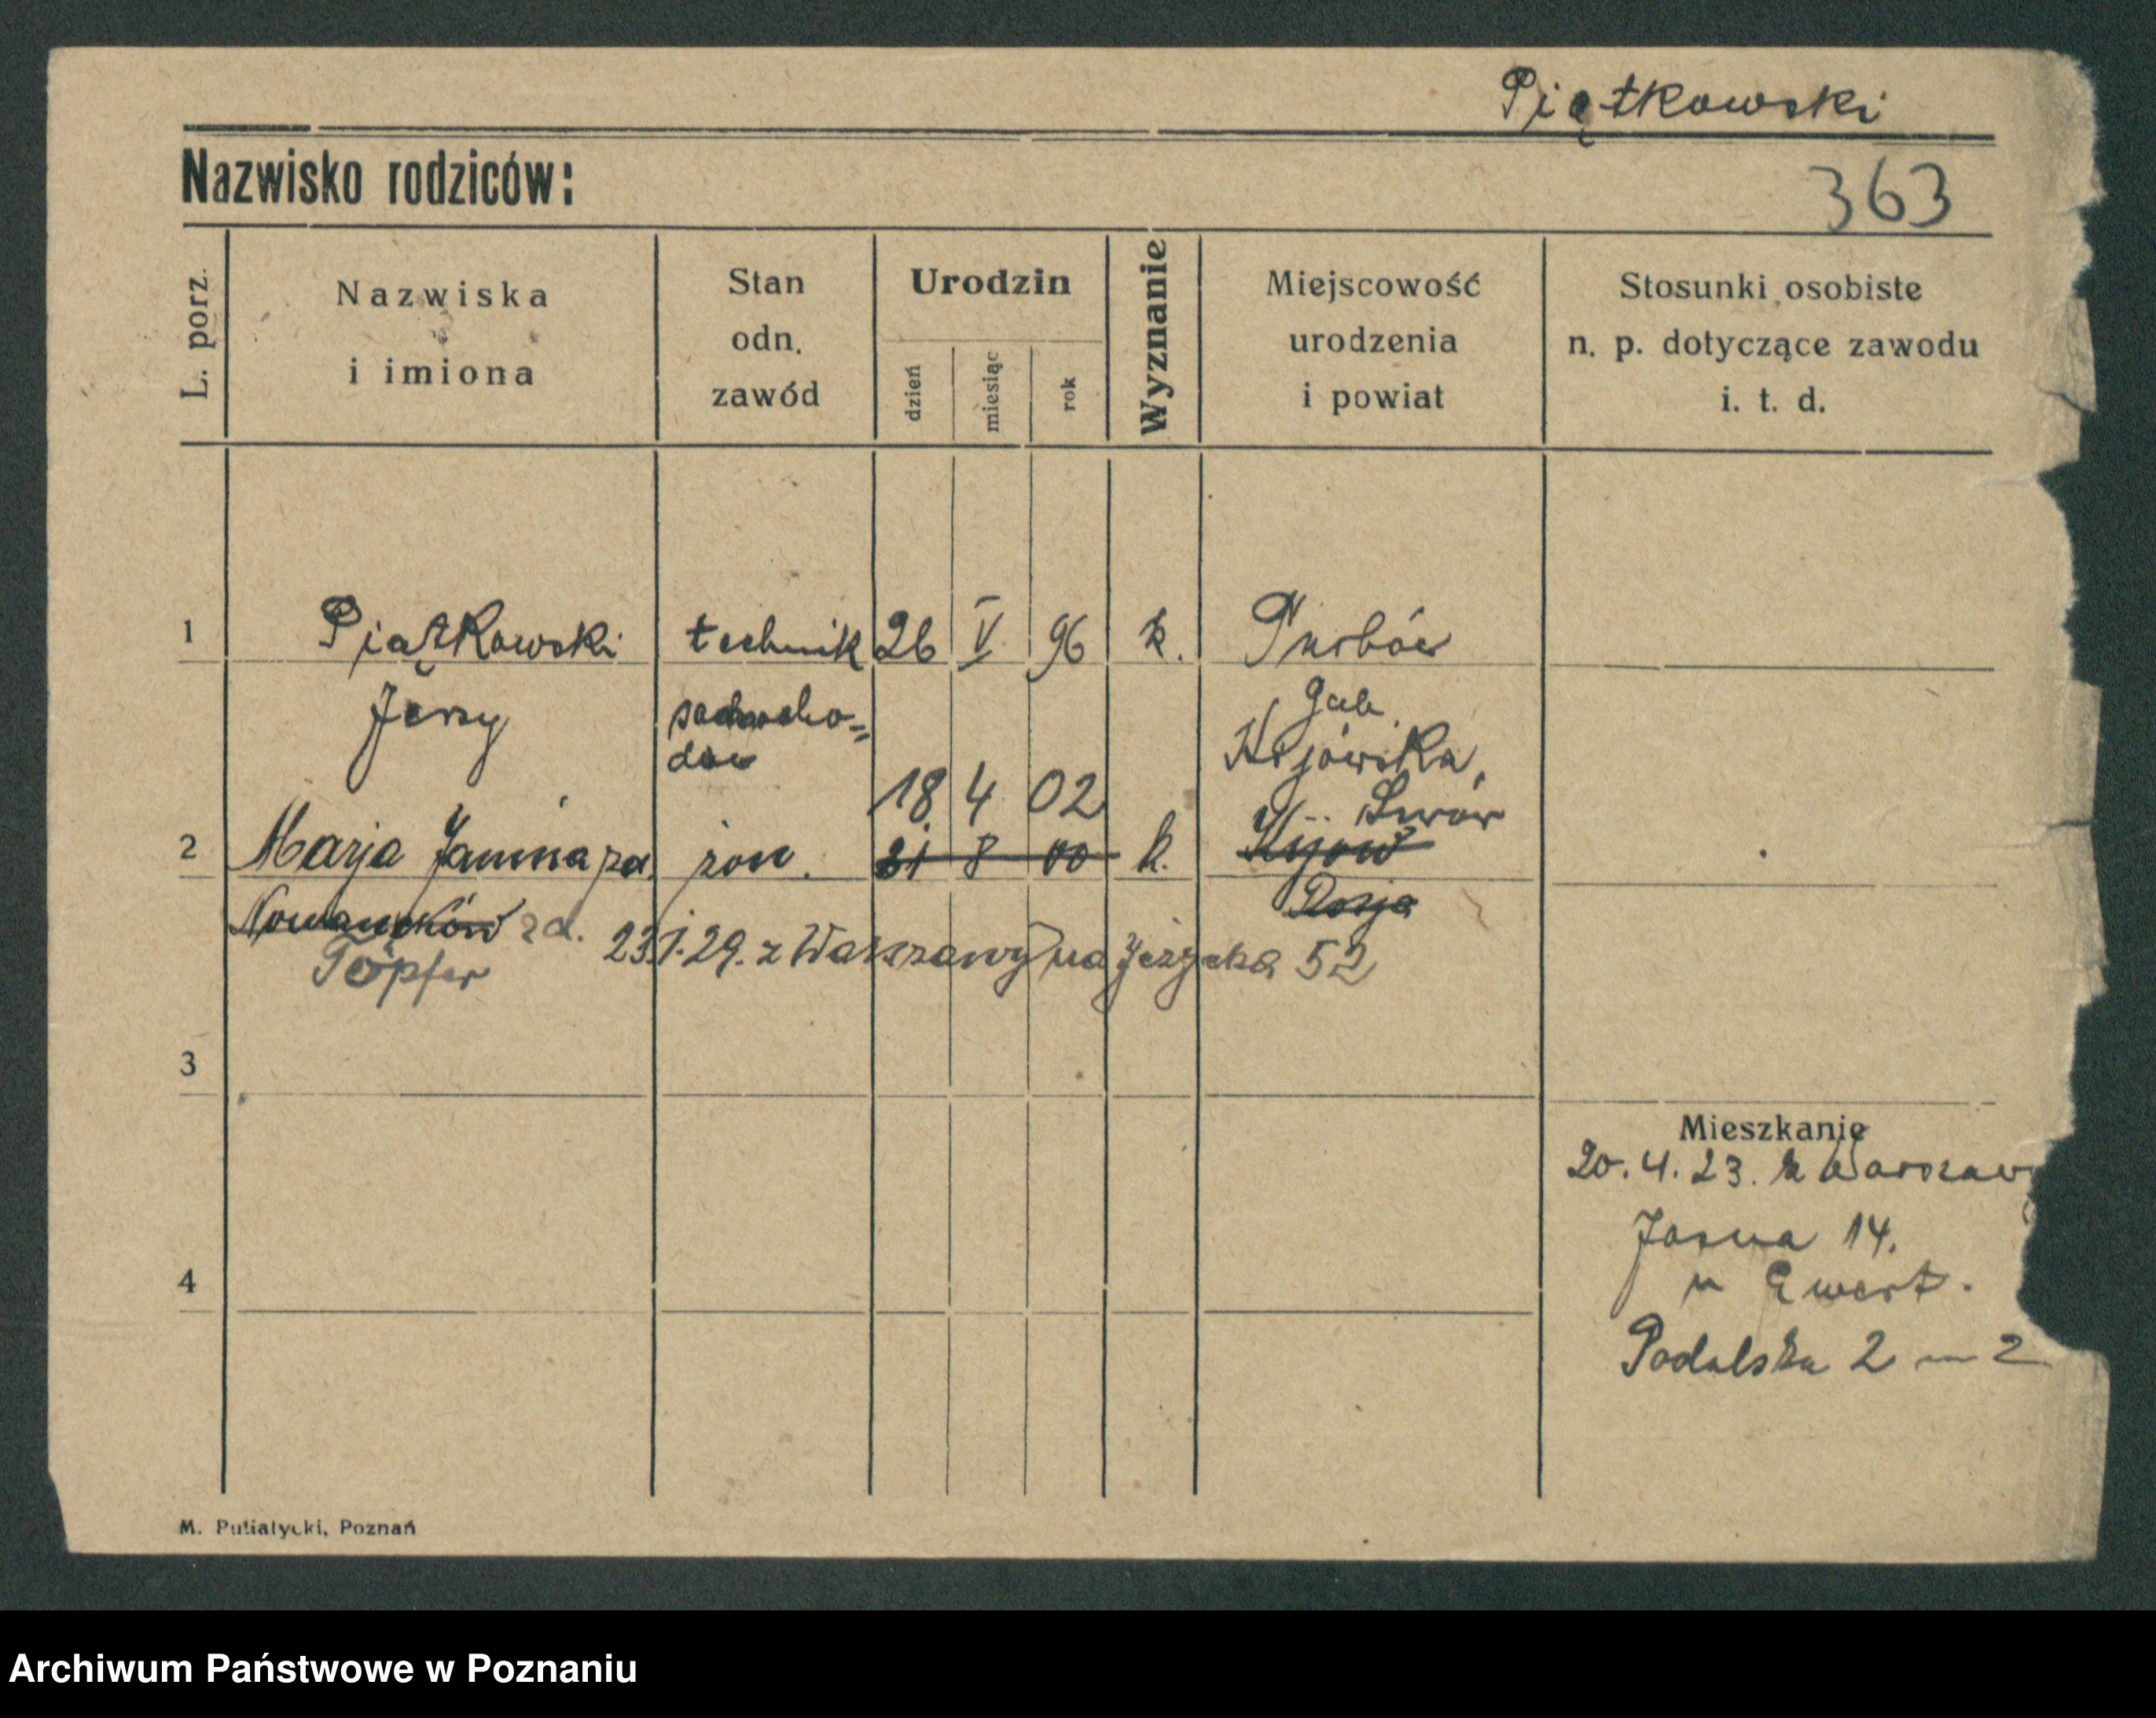 Piątkowski
Nazwisko rodziców:
363
L. porz.
Nazwiska
i imiona
Stan
odn.
zawód
Urodzin
dzień
miesiąc
rok
Wyznanie
Miejscowość
urodzenia
i powiat
Stosunki osobiste
n. p. dotyczące zawodu
i. t. d.
1 Piątkowski technik 26 V 96 k.
Jerzy
gub.
Kijowska,
18 4 02 Lwów
2 Marja Janina żon. 31 8 00 k. Kijow
Rosja
zd.
Töpfer
23.1.29. z Warszawy na Jeżycka 52
3
4
Mieszkanie
20. 4. 23. z Warszaw
Jasna 14.
u Ewert.
Podolska 2 m 2
M. Putiatycki, Poznań
Archiwum Państwowe w Poznaniu